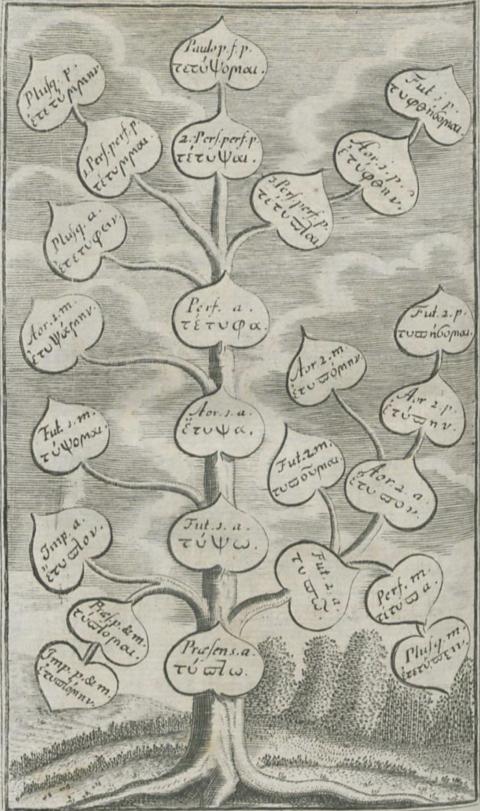 Paulo p. f. p.
τετύψομαι.
Plusq. p.
ἐτετύμμην
Fut. 1. p.
τυφθήσομαι.
1. Perf. perf. p.
τέτυμμαι.
2. Perf. perf. p.
τέτυψαι.
Aor. 1. p.
ἐτύφθην.
3. Perf. perf. p.
τέτυπται
Plusq. a.
ἐτετύφειν
Perf. a.
τέτυφα.
Aor. 1. m.
ἐτυψάμην.
Fut. 2. p.
τυπήσομαι.
Aor. 2. m.
ἐτυπόμην
Aor. 1. a.
ἔτυψα.
Aor. 2. p.
ἐτύπην.
Fut. 1. m.
τύψομαι.
Fut. 2. m.
τυποῦμαι.
Aor. 2. a.
ἔτυπον.
Imp. a.
ἔτυπτον.
Fut. 1. a.
τύψω.
Fut. 2. a.
τυπῶ.
Perf. m.
τέτυπα.
Præs. p. & m.
τύπτομαι.
Plusq. m.
ἐτετύπειν.
Imp. p. & m.
ἐτυπτόμην.
Præsens. a.
τύπτω.